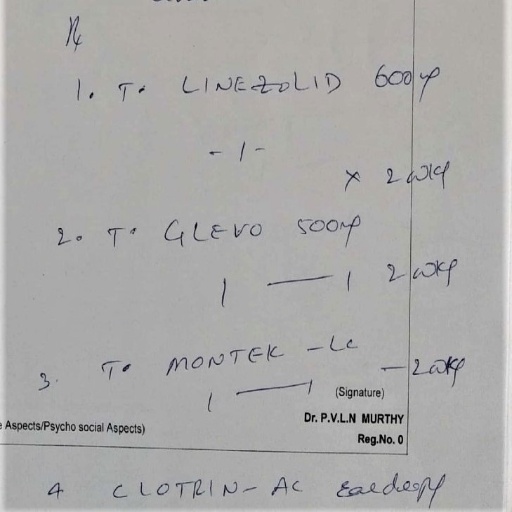 Rx
1. T. LINEZOLID 600mg
- 1 -
x 2 wks
2. T. GLEVO 500mg
1 — 1 2 wks
3. T. MONTEK - LC
1 — 1 - 2 wks
(Signature)
Dr. P.V.L.N MURTHY
Aspects/Psycho social Aspects)
Reg.No. 0
4 CLOTRIN - AC Eardrops